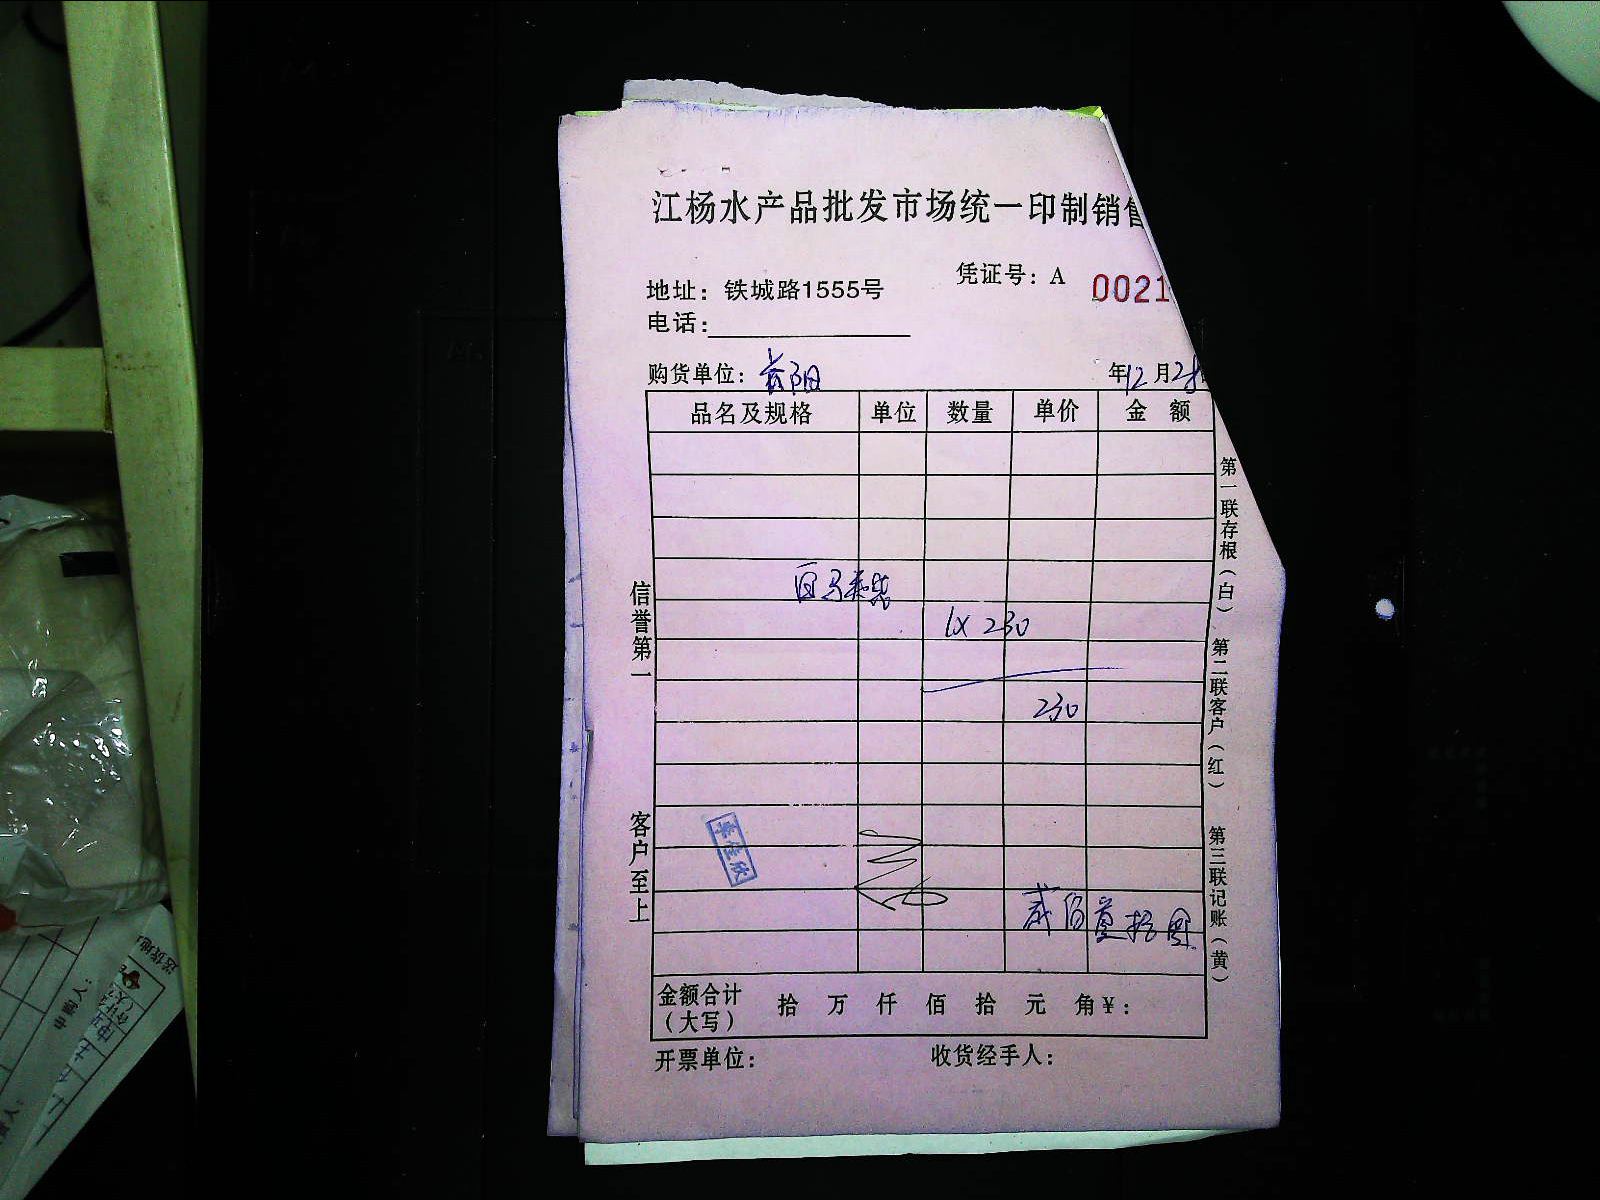 江杨水产品批发市场统一印制销售
凭证号：A 0021
地址：铁城路1555号
电话：
购货单位：
年12月28
品名及规格 单位 数量 单价 金 额
1X 230
230
贰佰叁拾圆
李佳欣
金额合计（大写） 拾 万 仟 佰 拾 元 角￥：
开票单位： 收货经手人：
信誉第一
客户至上
第一联存根（白）
第二联客户（红）
第三联记账（黄）
申购人：
送货地